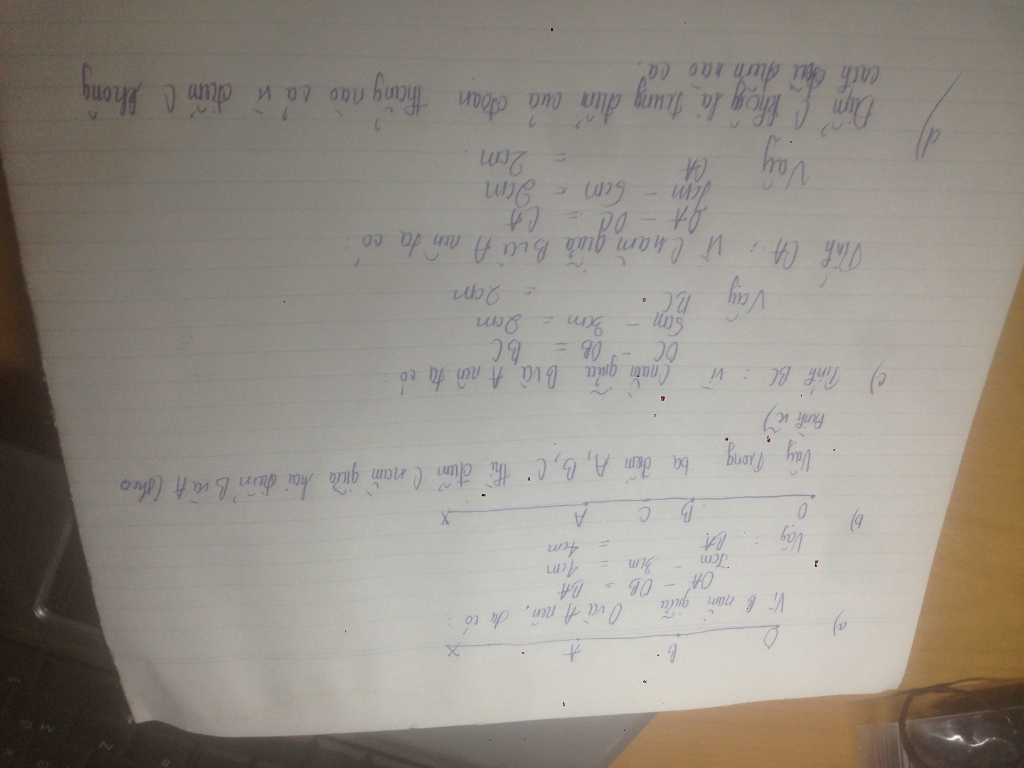 a)
O B A x
Vì B nằm giữa O và A nên ta có :
OA - OB = BA
7cm - 3cm = 4cm
Vậy : BA = 4cm
b)
O B C A x
Vậy trong ba điểm A, B, C thì điểm C nằm giữa hai điểm B và A (theo
hình vẽ)
c) Tính BC : Vì C nằm giữa B và A nên ta có :
OC - OB = BC
5cm - 3cm = 2cm
Vậy BC = 2cm
Tính CA : Vì C nằm giữa B và A nên ta có :
OA - OC = CA
7cm - 5cm = 2cm
Vậy CA = 2cm
d) Điểm C không là trung điểm của đoạn thẳng nào cả vì điểm C không
cách đều điểm nào cả.